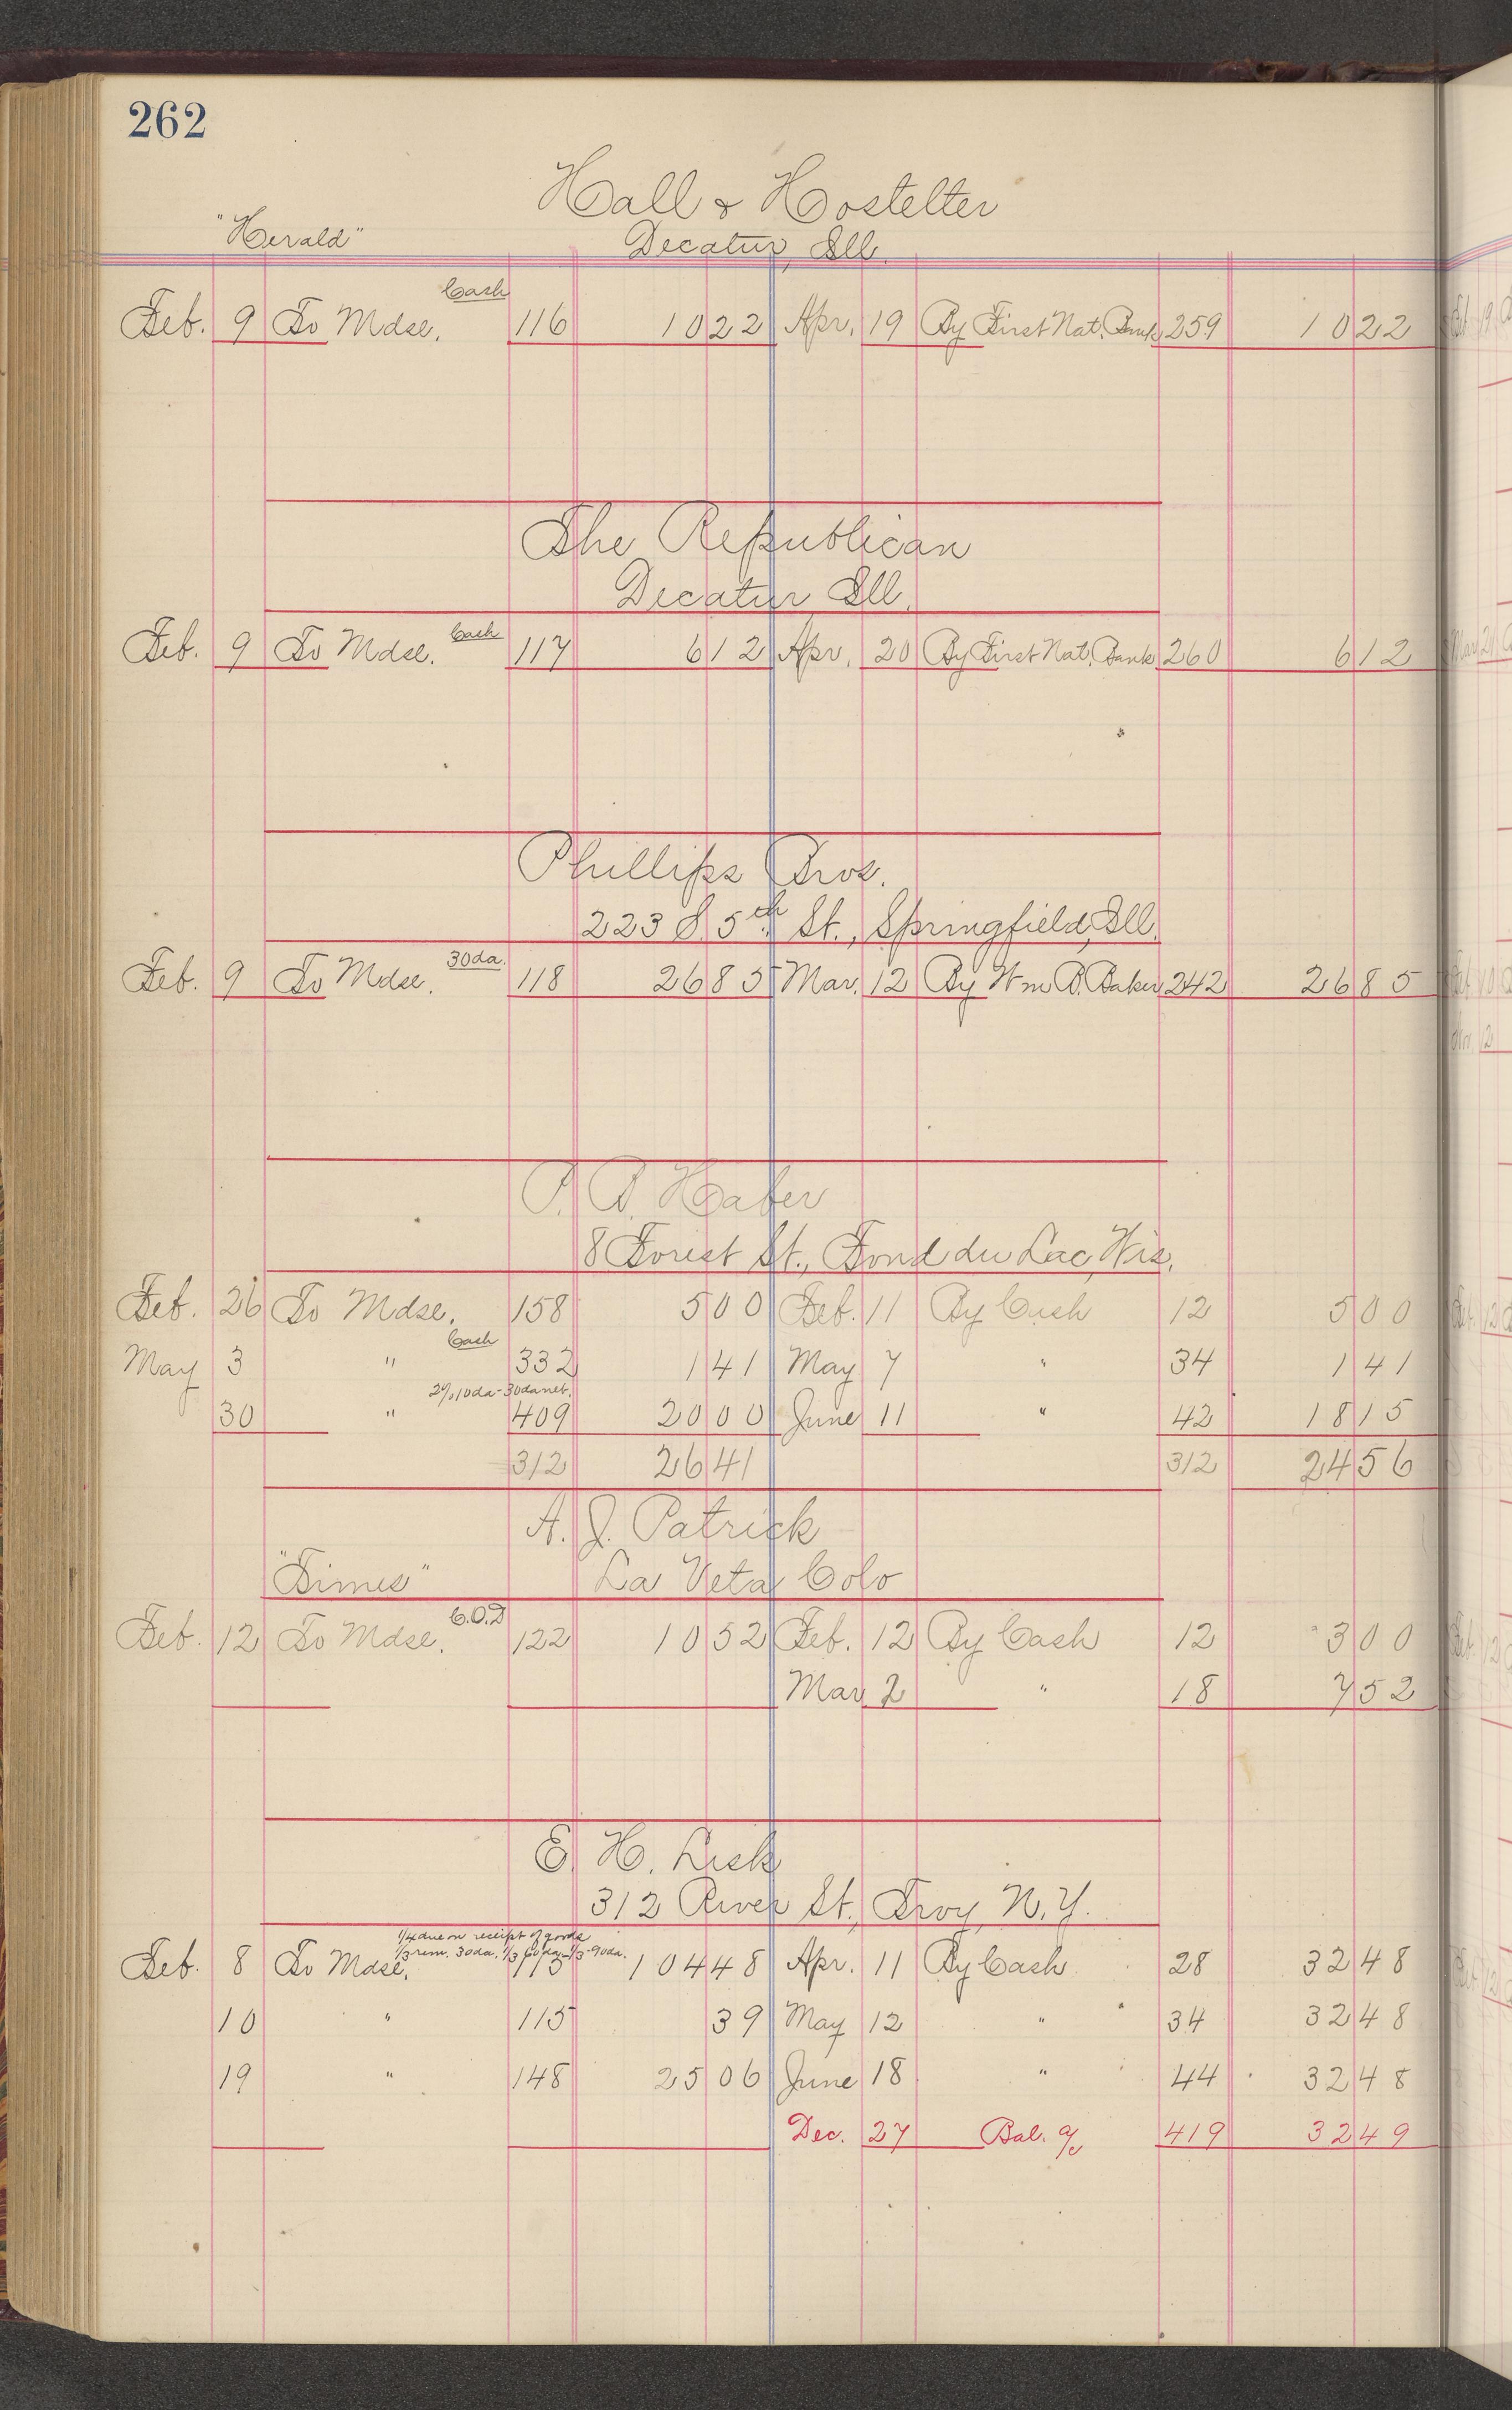 262
Hall & Hostetter
"Herald" Decatur, Ill.
Cash
Feb. 9 To Mdse. 116 10 22 Apr. 19 By First Nat. Bank 259 10 22
The Republican
Decatur Ill.
Feb. 9 To Mdse. Cash 117 6 12 Apr. 20 By First Nat. Bank 260 6 12
Phillips Bros.
223 S. 5th St., Springfield, Ill.
Feb. 9 To Mdse. 30 da. 118 26 85 Mar. 12 By Wm B. Baker 242 26 85
P. B. Haber
8 Forest St., Fond du Lac, Wis.
Feb. 26 To Mdse. 158 5 00 Feb. 11 By Cash 12 5 00
Cash
May 3 " 332 1 41 May 7 " 34 1 41
2% 10 da - 30 da net.
30 " 409 20 00 June 11 " 42 18 15
312 26 41 312 24 56
A. J. Patrick
"Times" La Veta Colo
Feb. 12 To Mdse. C.O.D 122 10 52 Feb. 12 By Cash 12 3 00
Mar 2 " 18 7 52
E. H. Lisk
312 River St., Troy, N.Y.
1/4 due on receipt of goods
1/3 rem. 30 da. 1/3 60 da - 1/3 - 90 da.
Feb. 8 To Mdse. 113 104 48 Apr. 11 By Cash 28 32 48
10 " 115 39 May 12 " 34 32 48
19 " 148 25 06 June 18 " 44 32 48
Dec. 27 Bal. a/c 419 32 49